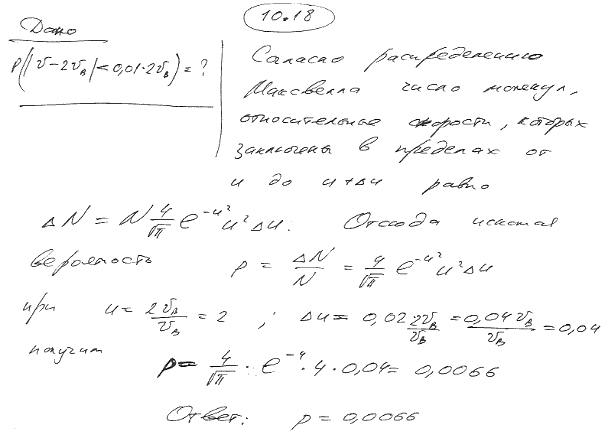 10.18
Дано
P(|v-2vв|<0,01·2vв)=?
Согласно распределению
Максвелла число молекул,
относительные скорости, которых
заключены в пределах от
u до u+Δu равно
ΔN = N 4/√π e^(-u²) u² Δu. Отсюда искомая
вероятность p = ΔN/N = 4/√π e^(-u²) u² Δu
при u = 2vв/vв = 2 ; Δu = 0,02 2vв/vв = 0,04vв/vв = 0,04
получим
p = 4/√π · e^(-4) · 4 · 0,04 = 0,0066
Ответ: p = 0,0066